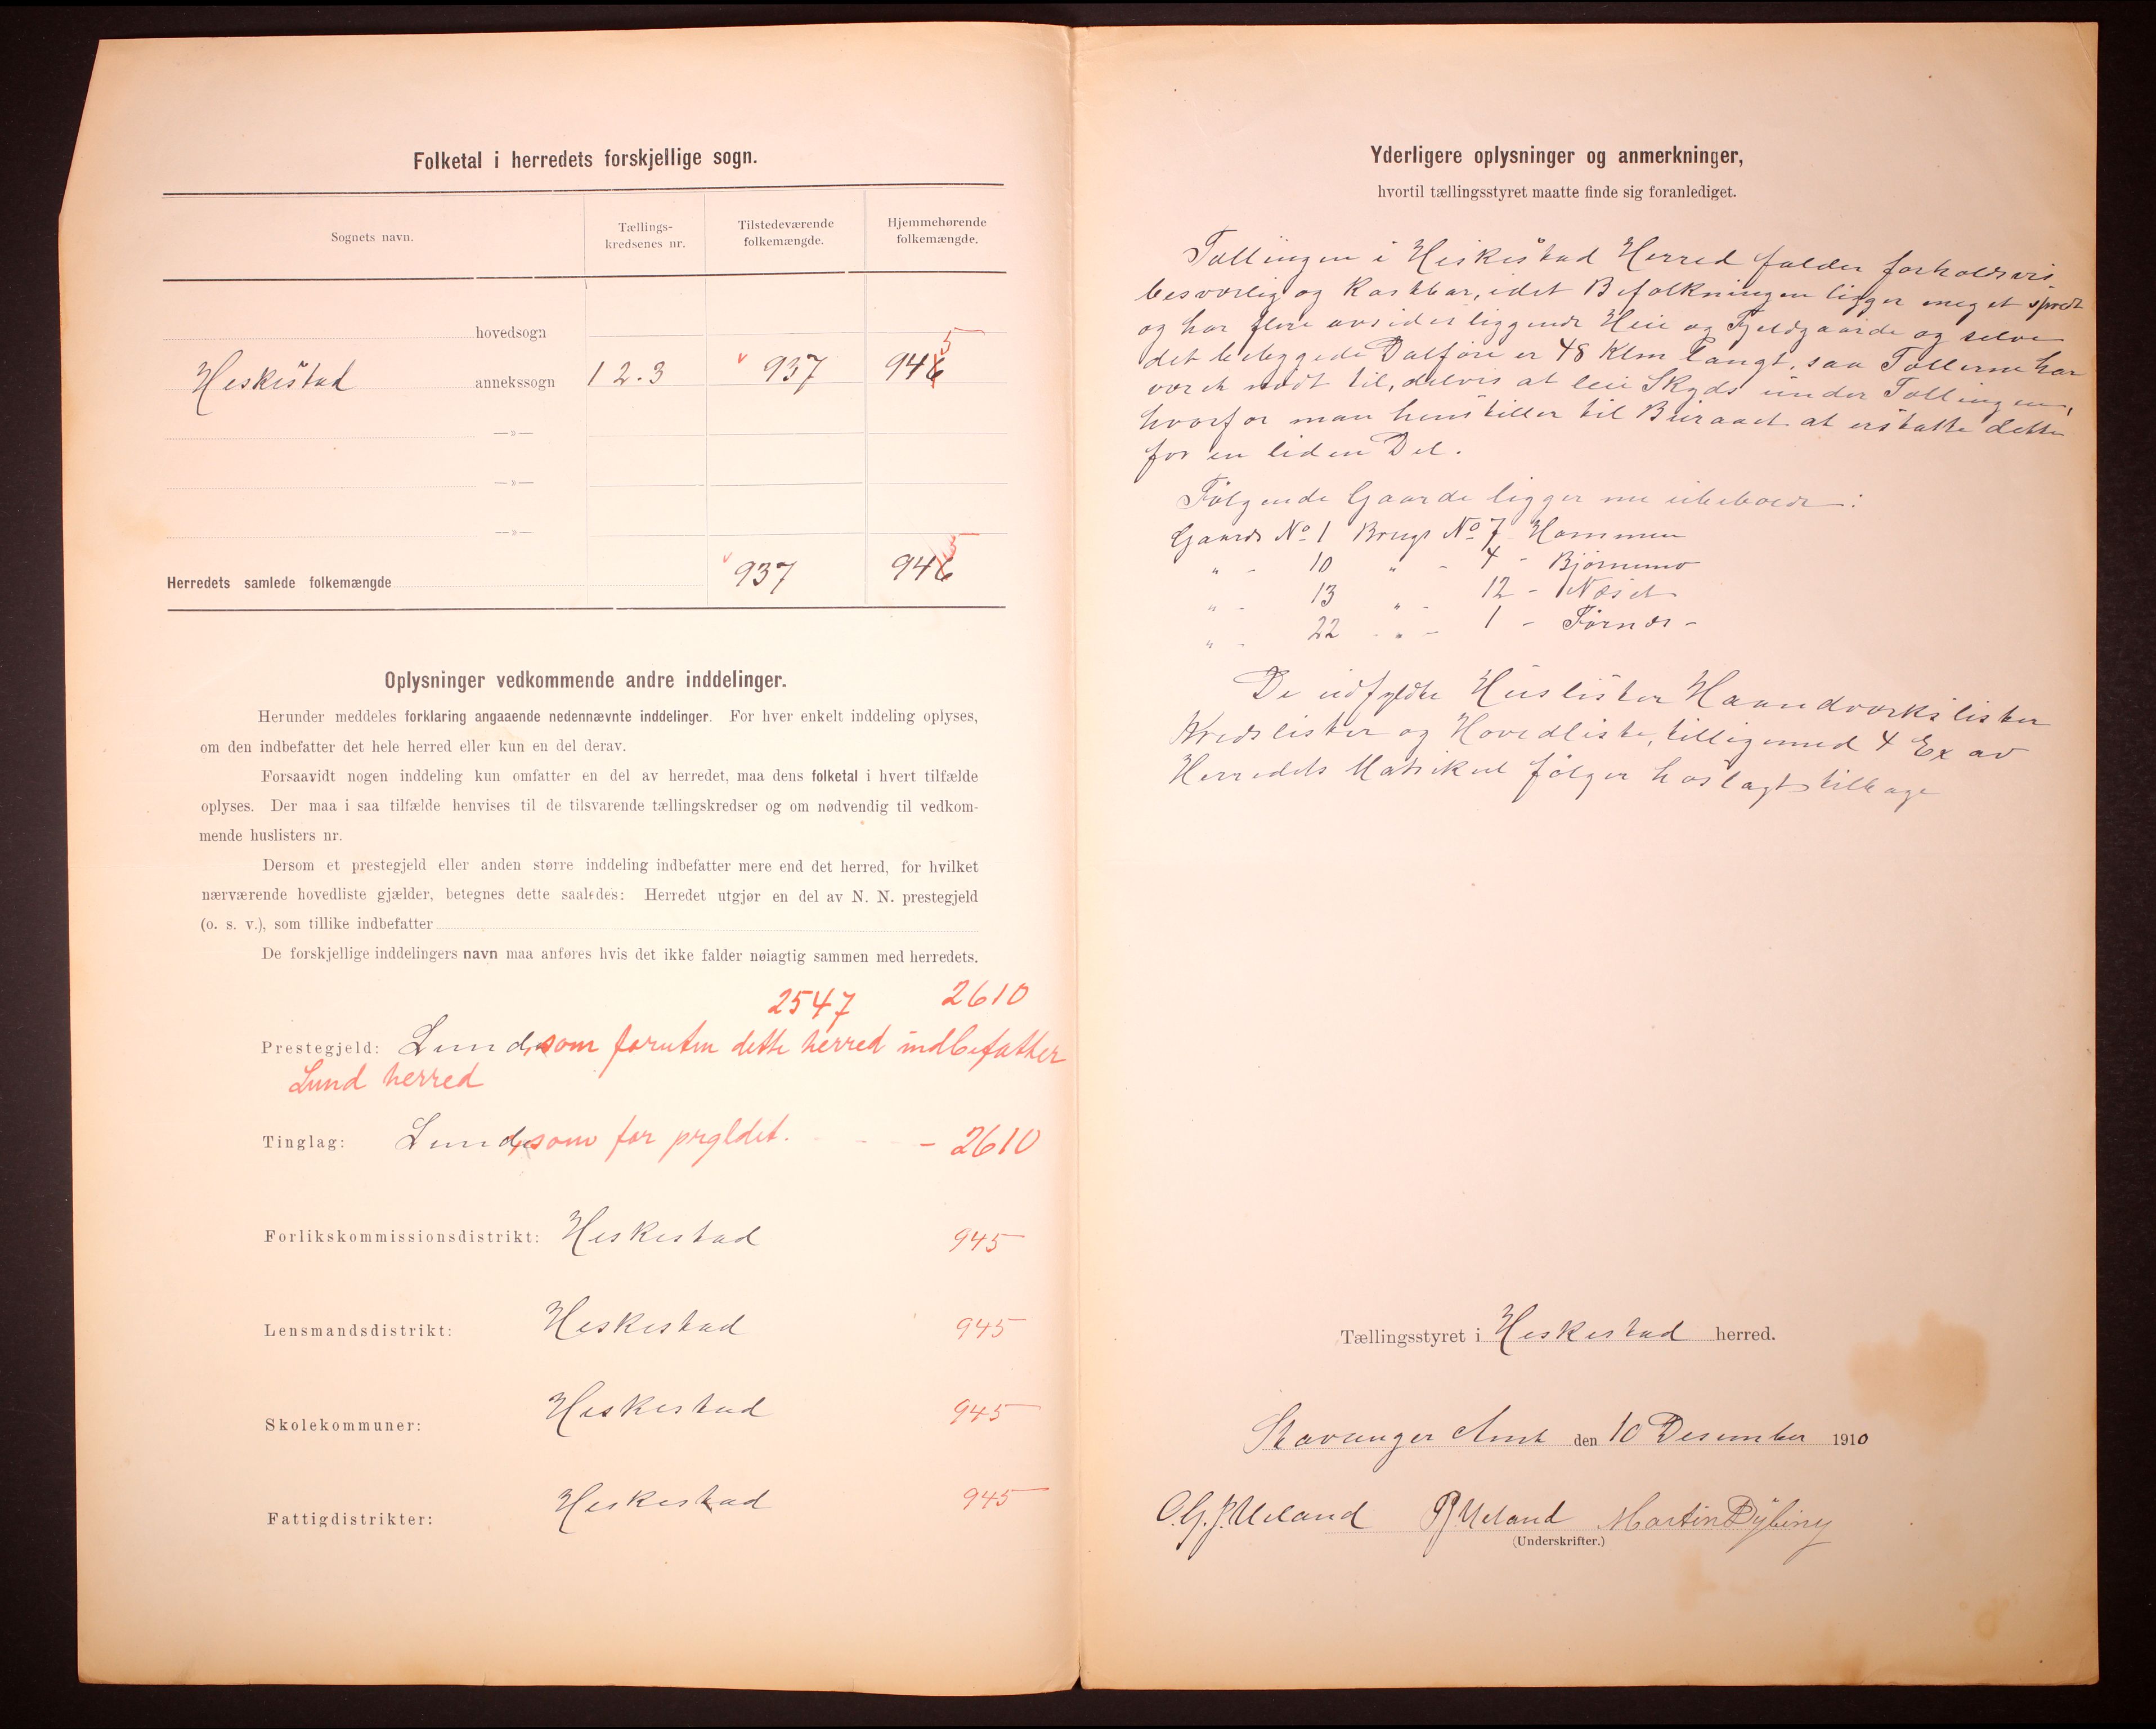 Folketal i herredets forskjellige sogn.
Sognets navn.
Tællings-
kredsenes nr.
Tilstedeværende
folkemængde.
Hjemmehørende
folkemængde.
hovedsogn
Heskestad annekssogn 1 2.3 937 946 5
—»—
—»—
—»—
Herredets samlede folkemængde 937 946 5
Oplysninger vedkommende andre inddelinger.
Herunder meddeles forklaring angaaende nedennævnte inddelinger. For hver enkelt inddeling oplyses,
om den indbefatter det hele herred eller kun en del derav.
Forsaavidt nogen inddeling kun omfatter en del av herredet, maa dens folketal i hvert tilfælde
oplyses. Der maa i saa tilfælde henvises til de tilsvarende tællingskredser og om nødvendig til vedkom-
mende huslisters nr.
Dersom et prestegjeld eller anden større inddeling indbefatter mere end det herred, for hvilket
nærværende hovedliste gjælder, betegnes dette saaledes: Herredet utgjør en del av N. N. prestegjeld
(o. s. v.), som tillike indbefatter
De forskjellige inddelingers navn maa anføres hvis det ikke falder nøiagtig sammen med herredets.
2547 2610
Prestegjeld: Lund, som foruten dette herred indbefatter
Lund herred
Tinglag: Lund, som for prgldet. - 2610
Forlikskommissionsdistrikt: Heskestad 945
Lensmandsdistrikt: Heskestad 945
Skolekommuner: Heskestad 945
Fattigdistrikter: Heskestad 945
Yderligere oplysninger og anmerkninger,
hvortil tællingsstyret maatte finde sig foranlediget.
Tællingen i Heskestad Herred falder forholdsvis
besværlig og kostbar, idet Befolkningen ligger meget spredt
og har flere avsidesliggende Heie og Fjeldgaarde og selve
det bebyggede Dalføre er 48 Klm langt, saa Tællerne har
været nødt til, delvis at leie Skyds under Tællingen,
hvorfor man henstiller til Byraaet at erstatte dette
for en liden Del.
Følgende Gaarde ligger nu ubeboede:
Gaards No 1 Brugs No 7 Hommen
" - 10 " - 4 - Bjørnemo
" - 13 " - 12 - Næset
" - 22 - " - 1 -Førnes -
De udfyldte Huslister Haandverkslister
Kredslister og Hovedliste, tilligemed 4 Ex av
Herredets Matrikel følger hoslagt tilbage
Tællingsstyret i Heskestad herred.
Stavanger Amt den 10 Desember 1910
O.G.J. Ueland P J Ueland Martin Dybing
(Underskrifter.)